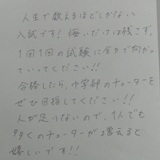 人生で数えるほどしかない
入試です！悔いだけは残さず、
1回1回の試験に全力で向かっ
ていってください!!
合格したら、中学部のチューターを
ぜひ目指してください!!
人が足りないので、1人でも
多くのチューターが増えると
嬉しいです!!